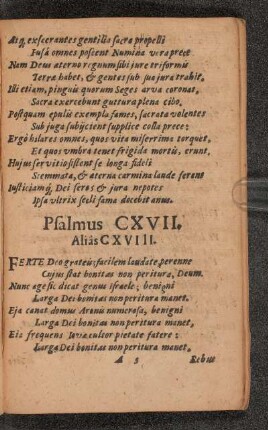 Atq, exsecrantes gentilia sacra propelli
Fusâ omnes poscent Numina vera preces
Nam Deus aterno regnum sibi jure triformis
Terra habet, & gentes sub sua jura trahit,
Illi etiam, pinguis quorum Seges arva coronat,
Sacra exercebunt guttura plena cibo,
Postquam epulis exempla fames, sacrata volentes
Sub juga subjicient supplice colla prece;
Ergò hilares omnes, quos vita miserrima torquet,
Et quos umbra tenet frigida mortis, erunt,
Hujus servitio sistent se longa fideli
Stemmata, & aterna carmina laude ferent
Iusticiamq́, Dei seros & jura nepotes
Ipsa ultrix sceli fama docebit anus.
Psalmus CXVII.
Aliàs CXVIII.
FERTE Deo grates; facilem laudate, perenne
Cujus stat bonitas non peritura, Deum.
Nunc age sic dicat genus Israelo; benigni
Larga Dei bonitas non peritura manet.
Eja canat domus Aronis numerosa, benigni
Larga Dei bonitas non peritura manet,
Eis frequens pietate fatere;
Larga Dei bonitas non peritura manet,
A 5 Rebus